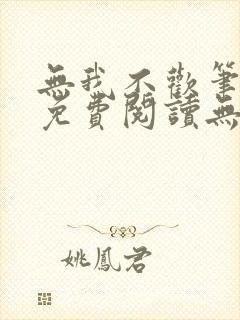 無我不歡筆
免費閱讀無
姚鳳君